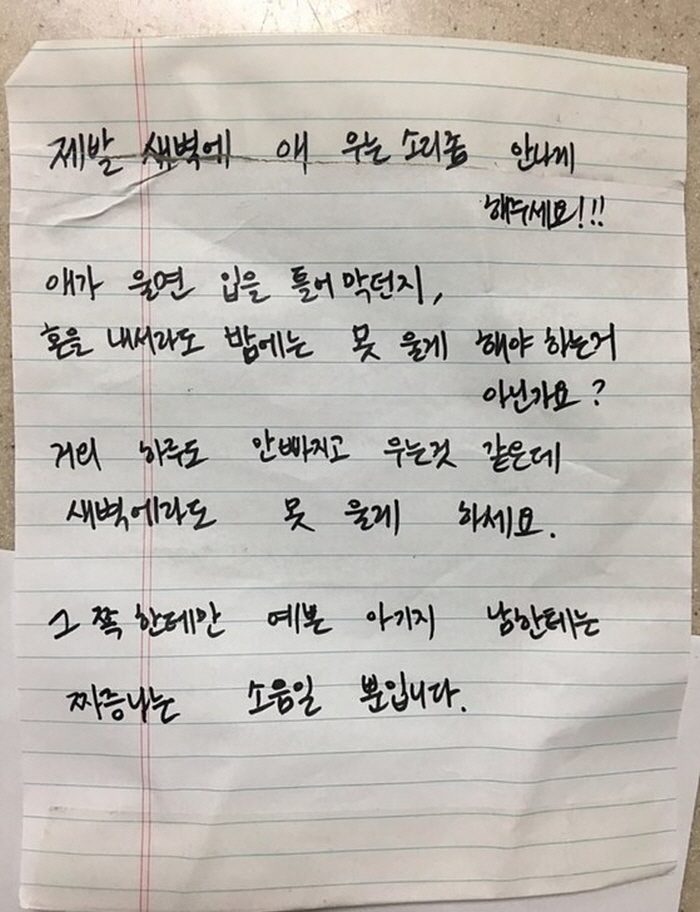 제발 새벽에 애 우는 소리좀 안나게
해주세요!!!
애가 울면 입을 틀어 막던지,
혼을 내서라도 밤에는 못 울게 해야 하는거
아닌가요?
거의 하루도 안빠지고 우는것 같은데
새벽에라도 못 울게 하세요.
그 쪽 한테만 예쁜 아기지 남한테는
짜증나는 소음일 뿐입니다.